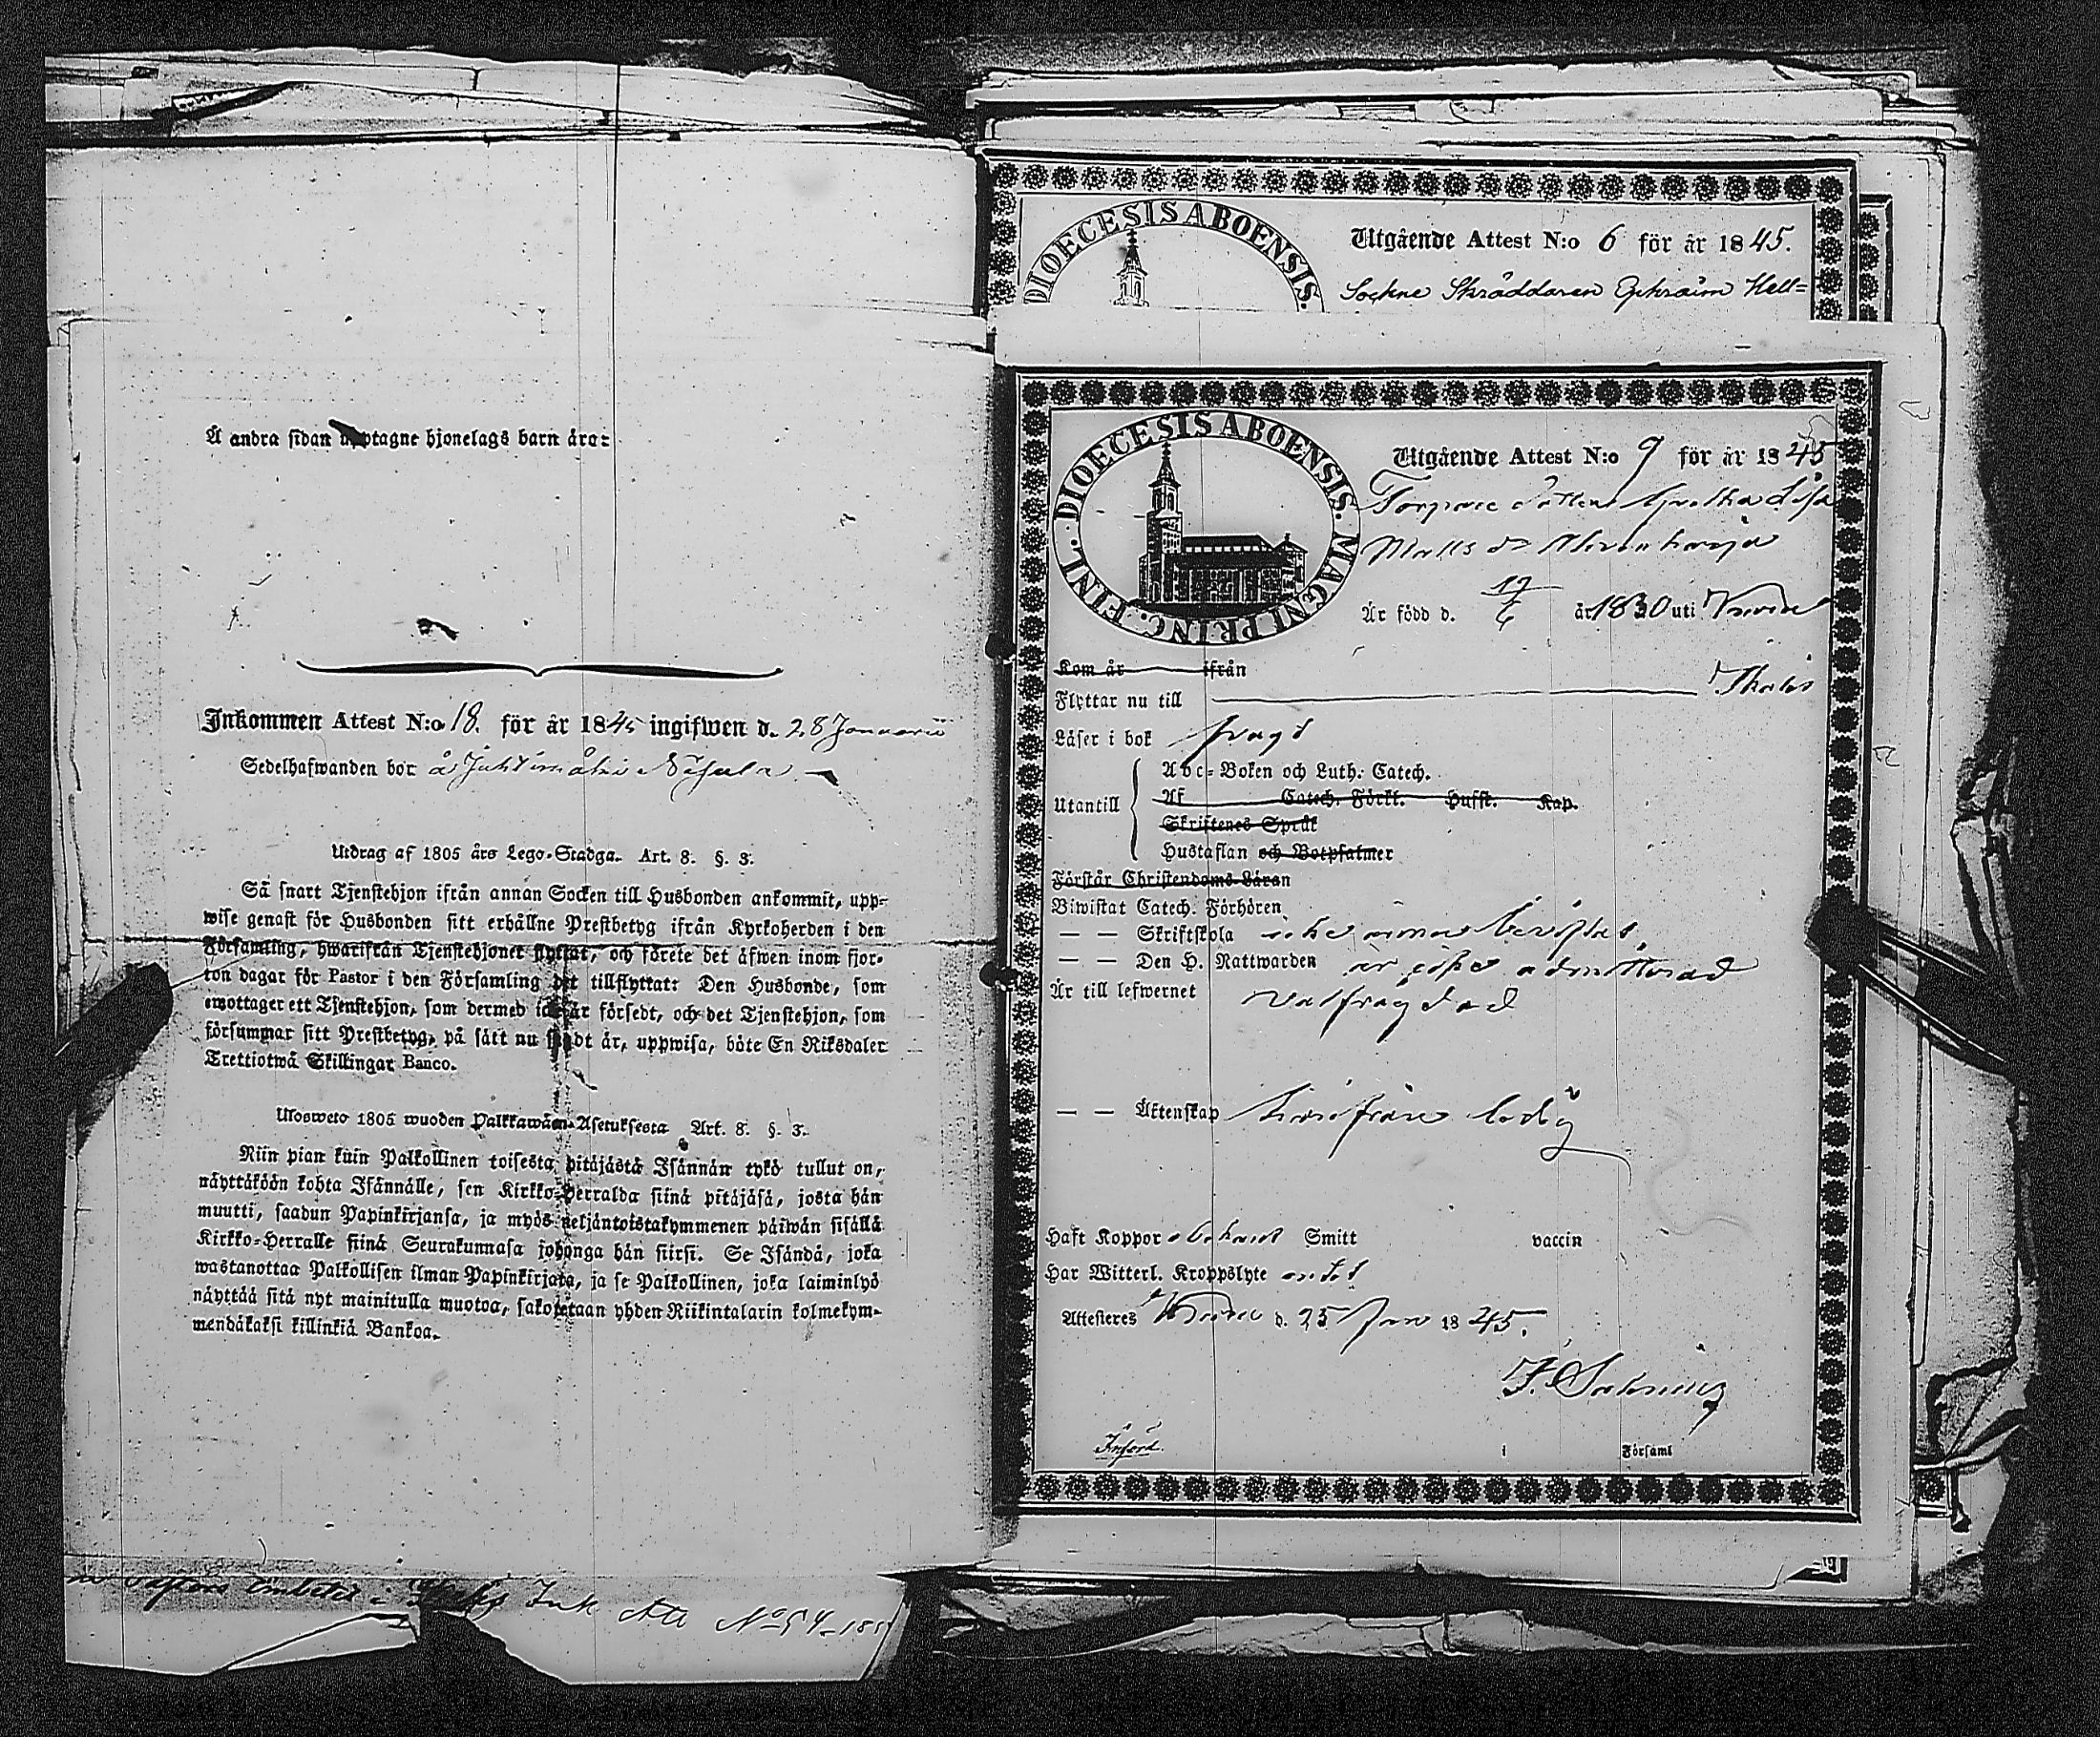 Å andra sidan upptagne hjonelags barn äro:
Inkommen Attest N:o 18. för år 1845 ingifwen d. 28 Januarii
Sedelhafwanden bor å
Utdrag af 1805 års Lego-Stadga. Art. 8. §. 3.
Så snart Tjenstehjon ifrån annan Socken till Husbonden ankommit, upp-
wise genast för Husbonden sitt erhållne Prestbetyg ifrån Kyrkoherden i den
Församling, hwarifrån Tjenstehjonet flyttat, och förete det äfwen inom fjor-
ton dagar för Pastor i den Församling det tillflyttat: Den Husbonde, som
emottager ett Tjenstehjon, som dermed icke är försedt, och det Tjenstehjon, som
försummar sitt Prestbetyg, på sätt nu sagdt är, uppwisa, böte En Riksdaler
Trettiotwå Skillingar Banco.
Ulosweto 1805 wuoden Palkkawäen-Asetuksesta Art. 8. §. 3.
Niin pian kuin Palkollinen toisesta pitäjästä Isännän tykö tullut on,
näyttäköön kohta Isännälle, sen Kirkko-Herralda siinä pitäjäsä, josta hän
muutti, saadun Papinkirjansa, ja myös neljäntoistakymmenen päiwän sisällä
Kirkko-Herralle siinä Seurakunnasa johonga hän siirsi. Se Isändä, joka
wastanottaa Palkollisen ilman Papinkirjata, ja se Palkollinen, joka laiminlyö
näyttää sitä nyt mainitulla muotoa, sakotetaan yhden Riikintalarin kolmekym-
mendäkaksi killinkiä Bankoa.
Ink Att No 54 185
DIOECESIS ABOENSIS.
Utgående Attest N:o 6 för år 1845.
Sockne Skräddaren Ephraim Hell=
DIOECESIS ABOENSIS. MAGNI PRINC. FINL.
Utgående Attest N:o 9 för år 1845
Torpare Lisa
Matts dr
Är född d. 17/6 år 1830 uti
Kom år ifrån
Flyttar nu till
Läser i bok svagt
Utantill
Abc-Boken och Luth. Catech.
Af Catech. Förkl. Husst. Kap.
Skriftenes Språk
Hustaflan och Botpsalmer
Förstår Christendoms-Läran
Biwistat Catech. Förhören
— — Skriftskola icke ännu bevistat
— — Den H. Nattwarden är icke admitterad
Är till lefwernet välfrägdad
— — Äktenskap hinderfri ledig
Haft Koppor obekant Smitt vaccin
Har Witterl. Kroppslyte intet
Attesteres d. 25 Jan 1845.
Införd.
i Församl